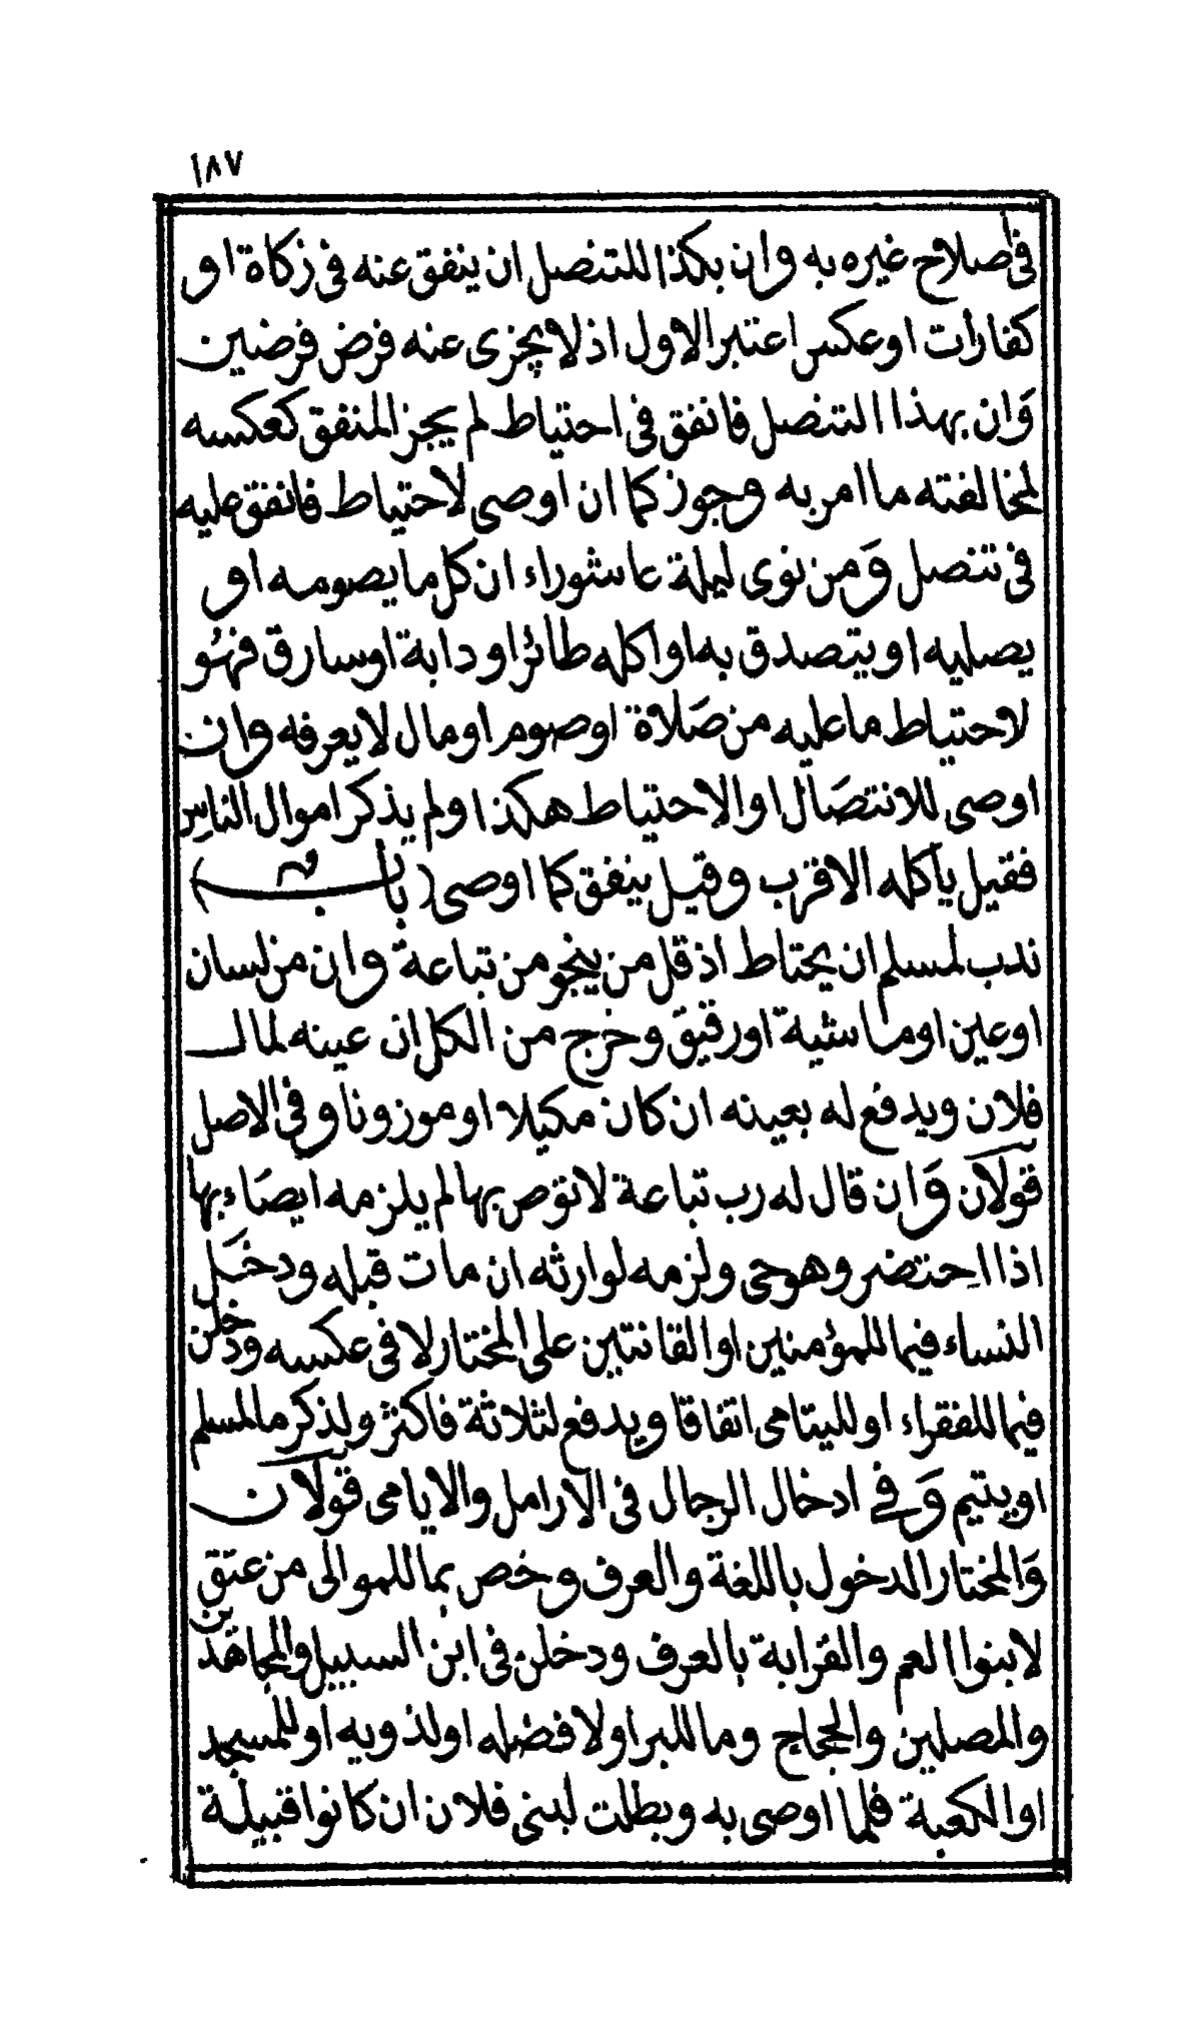 ١٨٧
فى اصلاح غيره به وان بكذا للتنصل ان ينفق عنه فى زكاة او
كفارات او عكس اعتبر الاول اذ لا يجزى عنه فرض فرضين
وان بهذا التنصل فانفق فى احتياط لم يجز المنفق كعكسه
لمخالفته ما امر به وجوز كما ان اوصى لاحتياط فانفق عليه
فى تنصل وَمن نوى ليلة عاشوراء ان كل ما يصومه او
يصليه او يتصدق به او اكله طائر او دابة او سارق فهُو
لاحتياط ما عليه من صَلاة او صوم او مال لا يعرفه وان
اوصى للانتصَال او الاحتياط هكذا ولم يذكر اموال الناسِ
فقيل يأكله الاقرب وقيل ينفق كما اوصى (باب)
ندب لمسلم ان يحتاط اذ قل من ينجو من تباعة وان من لسان
او عين او ماشية او رقيق وخرج من الكل ان عينه لمال
فلان ويدفع له بعينه ان كان مكيلا او موزونا وفى الاصل
قولان وَان قال له رب تباعة لا توص بها لم يلزمه ايصَاء بها
اذا احِتضر وهو حى ولزمه لوارثه ان مات قبله ودخَل
النساء فيما للمؤمنين او القانتين على المختار لا فى عكسه ودخلن
فيما للفقراء او لليتامى اتفاقا ويدفع لثلاثة فاكثر ولذكر ما لمسلم
او يتيم وَفى ادخال الرجال فى الارامل والايامى قولان
وَالمختار الدخول باللغة والعرف وخص بما للموالى من عتق
لا بنوا العم والقرابة بالعرف ودخلن فى ابن السبيل والمجاهدين
والمصلين والحجاج وما للبر او لافضله او لذويه او للمسجد
او الكعبة فلما اوصى به وبطلت لبنى فلان ان كانوا قبيلة